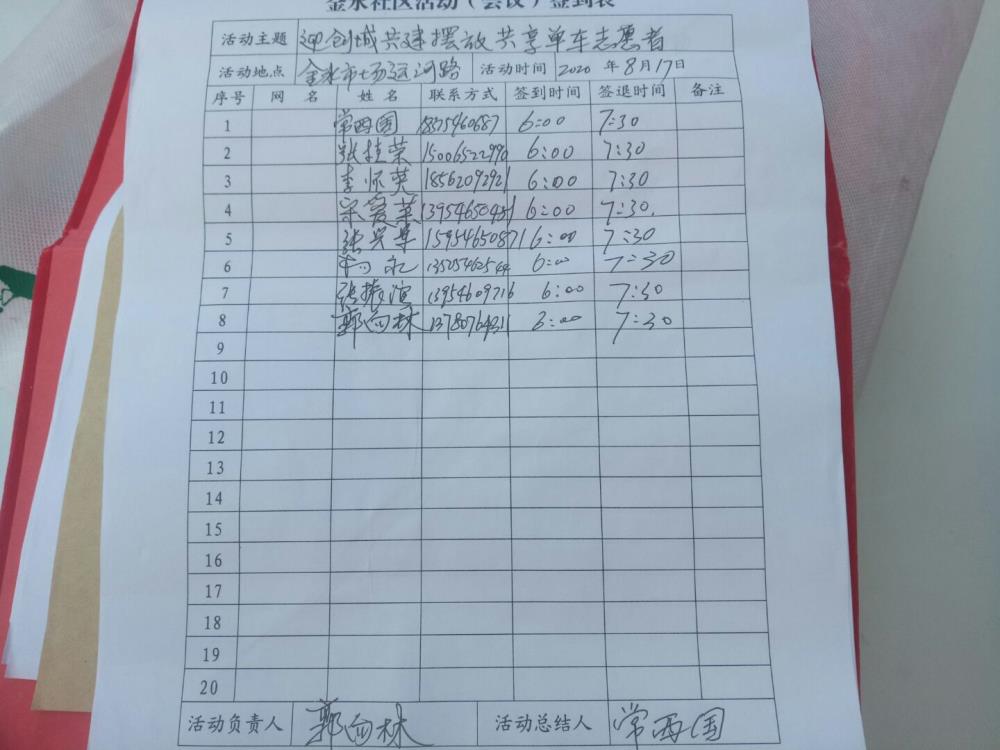 金水社区活动（会议）签到表
活动主题 迎创城共建摆放共享单车志愿者
活动地点 金水市场运河路 活动时间 2020 年 8 月 17 日
序号 网 名 姓 名 联系方式 签到时间 签退时间 备注
1 常西国 6:00 7:30
2 张桂荣 15006522990 6:00 7:30
3 李怀英 18562092921 6:00 7:30
4 6:00 7:30
5 张兴华 15954650871 6:00 7:30
6 6:00 7:30
7 张振滨 13954609716 6:00 7:30
8 郭向林 7:30
9
10
11
12
13
14
15
16
17
18
19
20
活动负责人 郭向林 活动总结人 常西国